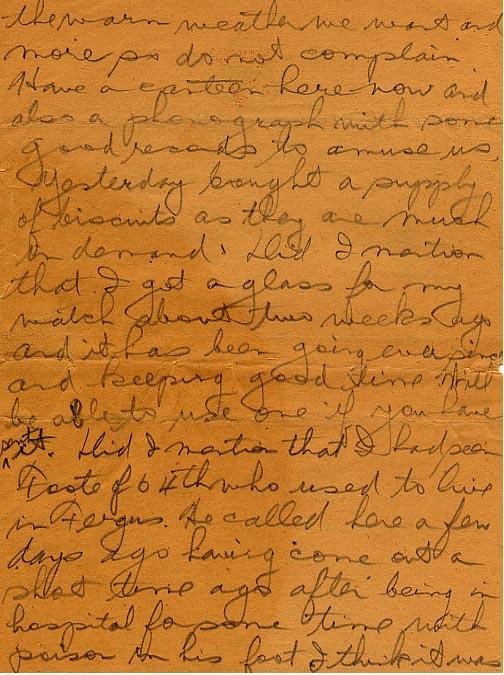 the warm weather we want and
more so do not complain
Have a canteen here now and
also a phonograph with some
good records to amuse us
Yesterday bought a supply
of biscuits as they are much
in demand. Did I mention
that I got a glass for my
watch about two weeks ago
and it has been going ever since
and keeping good time Will
be able to use one if you have
sent it. Did I mention that I had seen
Foote of 64th who used to live
in Fergus. He called here a few
days ago having come out a
short time ago after being in
hospital for some time with
poison in his foot I think it was